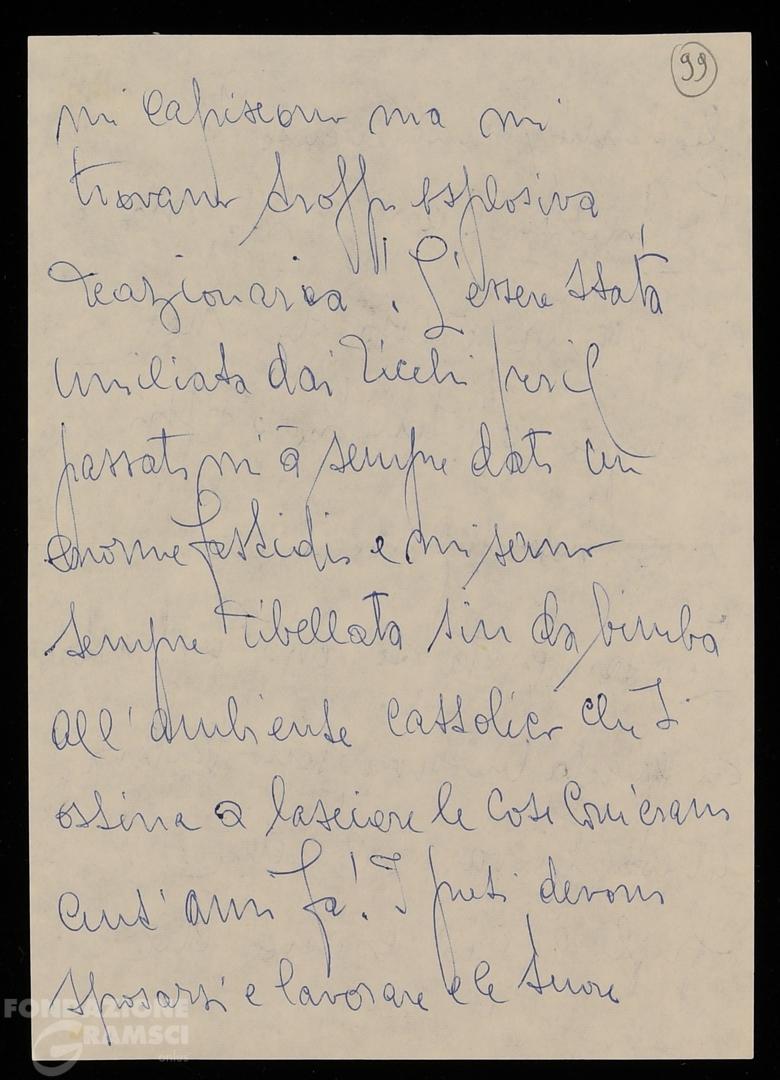 99
mi capiscono ma mi
trovano troppo esplosiva
reazionaria! L'essere stata
umiliata dai ricchi per il
passato mi à sempre dato un
enorme fastidio e mi sono
sempre ribellata sin da bimba
all'ambiente cattolico che si
ostina a lasciare le cose com'erano
cent'anni fa! I preti devono
sposarsi e lavorare e le suore
FONDAZIONE
GRAMSCI
onlus